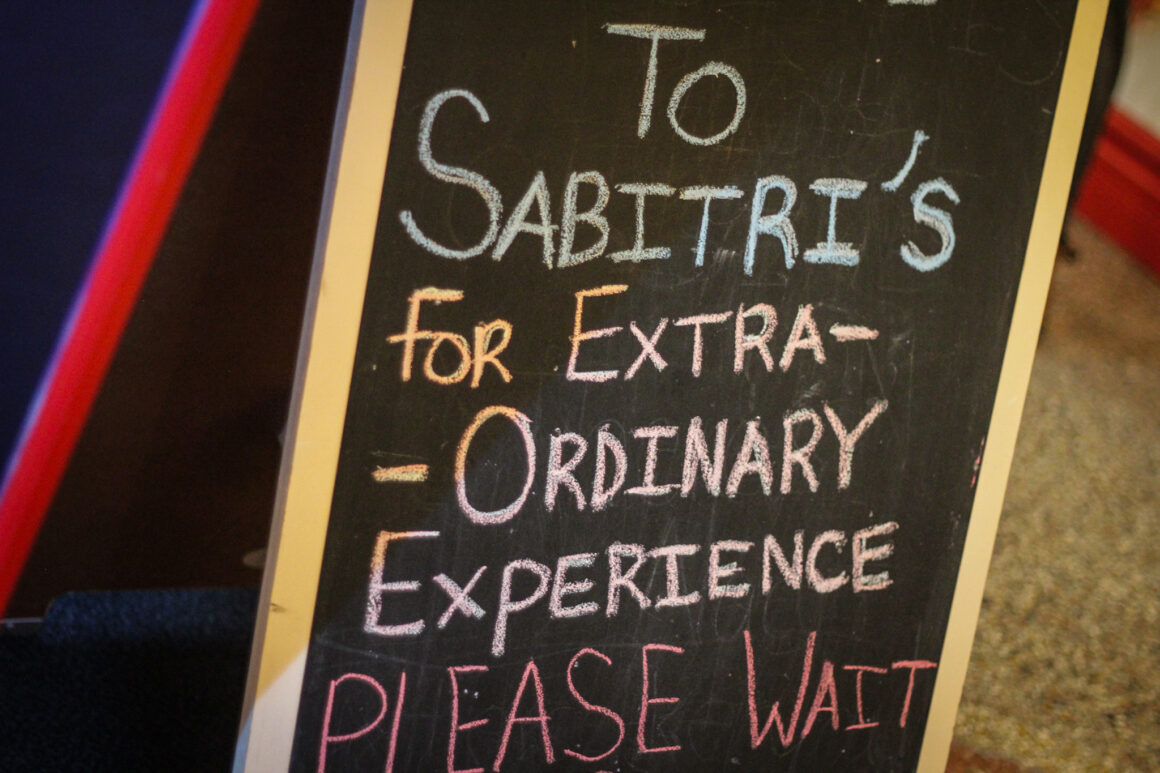 To
SABITRI's
FOR EXTRA-
- ORDINARY
EXPERIENCE
PLEASE WAIT